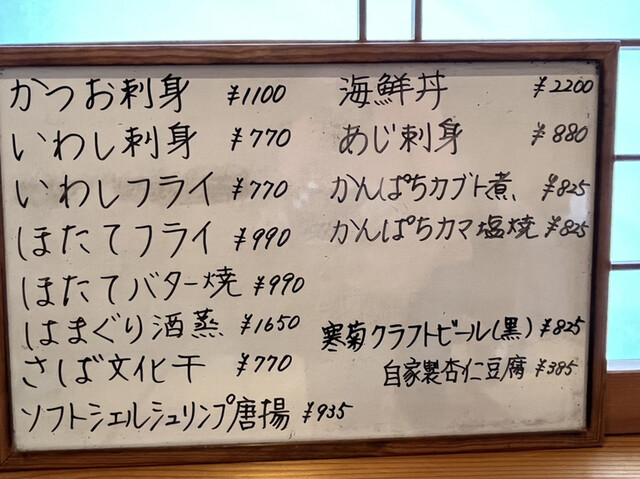 かつお刺身 ¥1100
いわし刺身 ¥770
いわしフライ ¥770
ほたてフライ ¥990
ほたてバター焼 ¥990
はまぐり酒蒸 ¥1650
さば文化干 ¥770
ソフトシェルシュリンプ唐揚 ¥935
海鮮丼 ¥2200
あじ刺身 ¥880
かんぱちカブト煮 ¥825
かんぱちカマ塩焼 ¥825
寒菊クラフトビール(黒) ¥825
自家製杏仁豆腐 ¥385